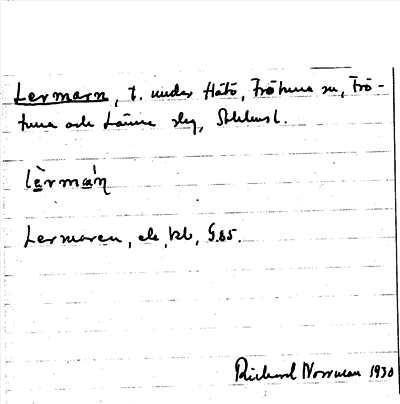 Lermarn, t. under Hatö, Frötuna sn, Frö-
tuna och Länna slg, Stckhm l.
lèrmàṇ
Lermaren, ek, kb, G.85.
Richard Norrman 1930